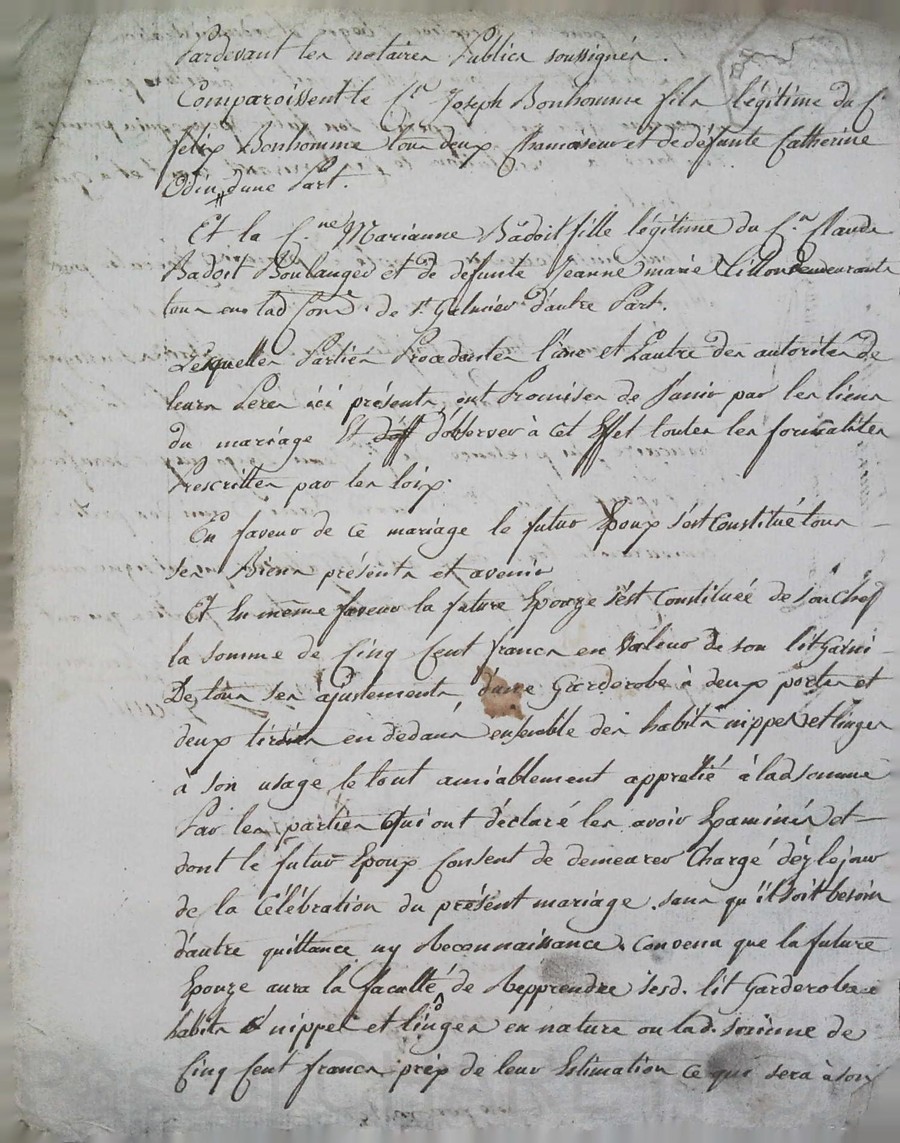 Pardevant les notaires Publics soussignés.
Comparoissent le C.en Joseph Bonhomme fils légitime du C.
felix Bonhomme tous deux et de défunte Catherine
Odin d'une Part.
Et la C.ne Marianne Badoit fille légitime du C.en Claude
Badoit Boulanger et de défunte Jeanne marie demeurants
tous en lad. Com.e de S.t Galmier d'autre Part.
Lesquelles Parties Procedantes l'une et L'autre des autorités de
leurs Peres ici présents, ont Promises de S'unir par les liens
du mariage Et d'observer à cet Effet toutes les formalités
Prescrittes par les loix.
En faveur de ce mariage le futur Epoux s'est Constitué tous
ses Biens présents et avenir
Et En même faveur la future Epouze s'est Constituée de son Chef
la somme de Cinq Cent francs en valeur de son lit Garni
De tous ses ajustements, d'une Garderobe à deux portes et
deux tiroirs en dedans ensemble des habits nippes et linges
à son usage le tout amiablement appretié à lad. somme
Par les parties Qui ont déclaré les avoir Examinés et
dont le futur Epoux Consent de demeurer Chargé déz le jour
de la Célébration du présent mariage, sans qu'il soit besoin
d'autre quittance ny Reconnaissance. Convenu que la future
Epouze aura la faculté de Repprendre sesd. lit Garderobe
habits nippes et linges en nature ou lad. somme de
Cinq Cent francs prix de leur Estimation ce qui sera à son